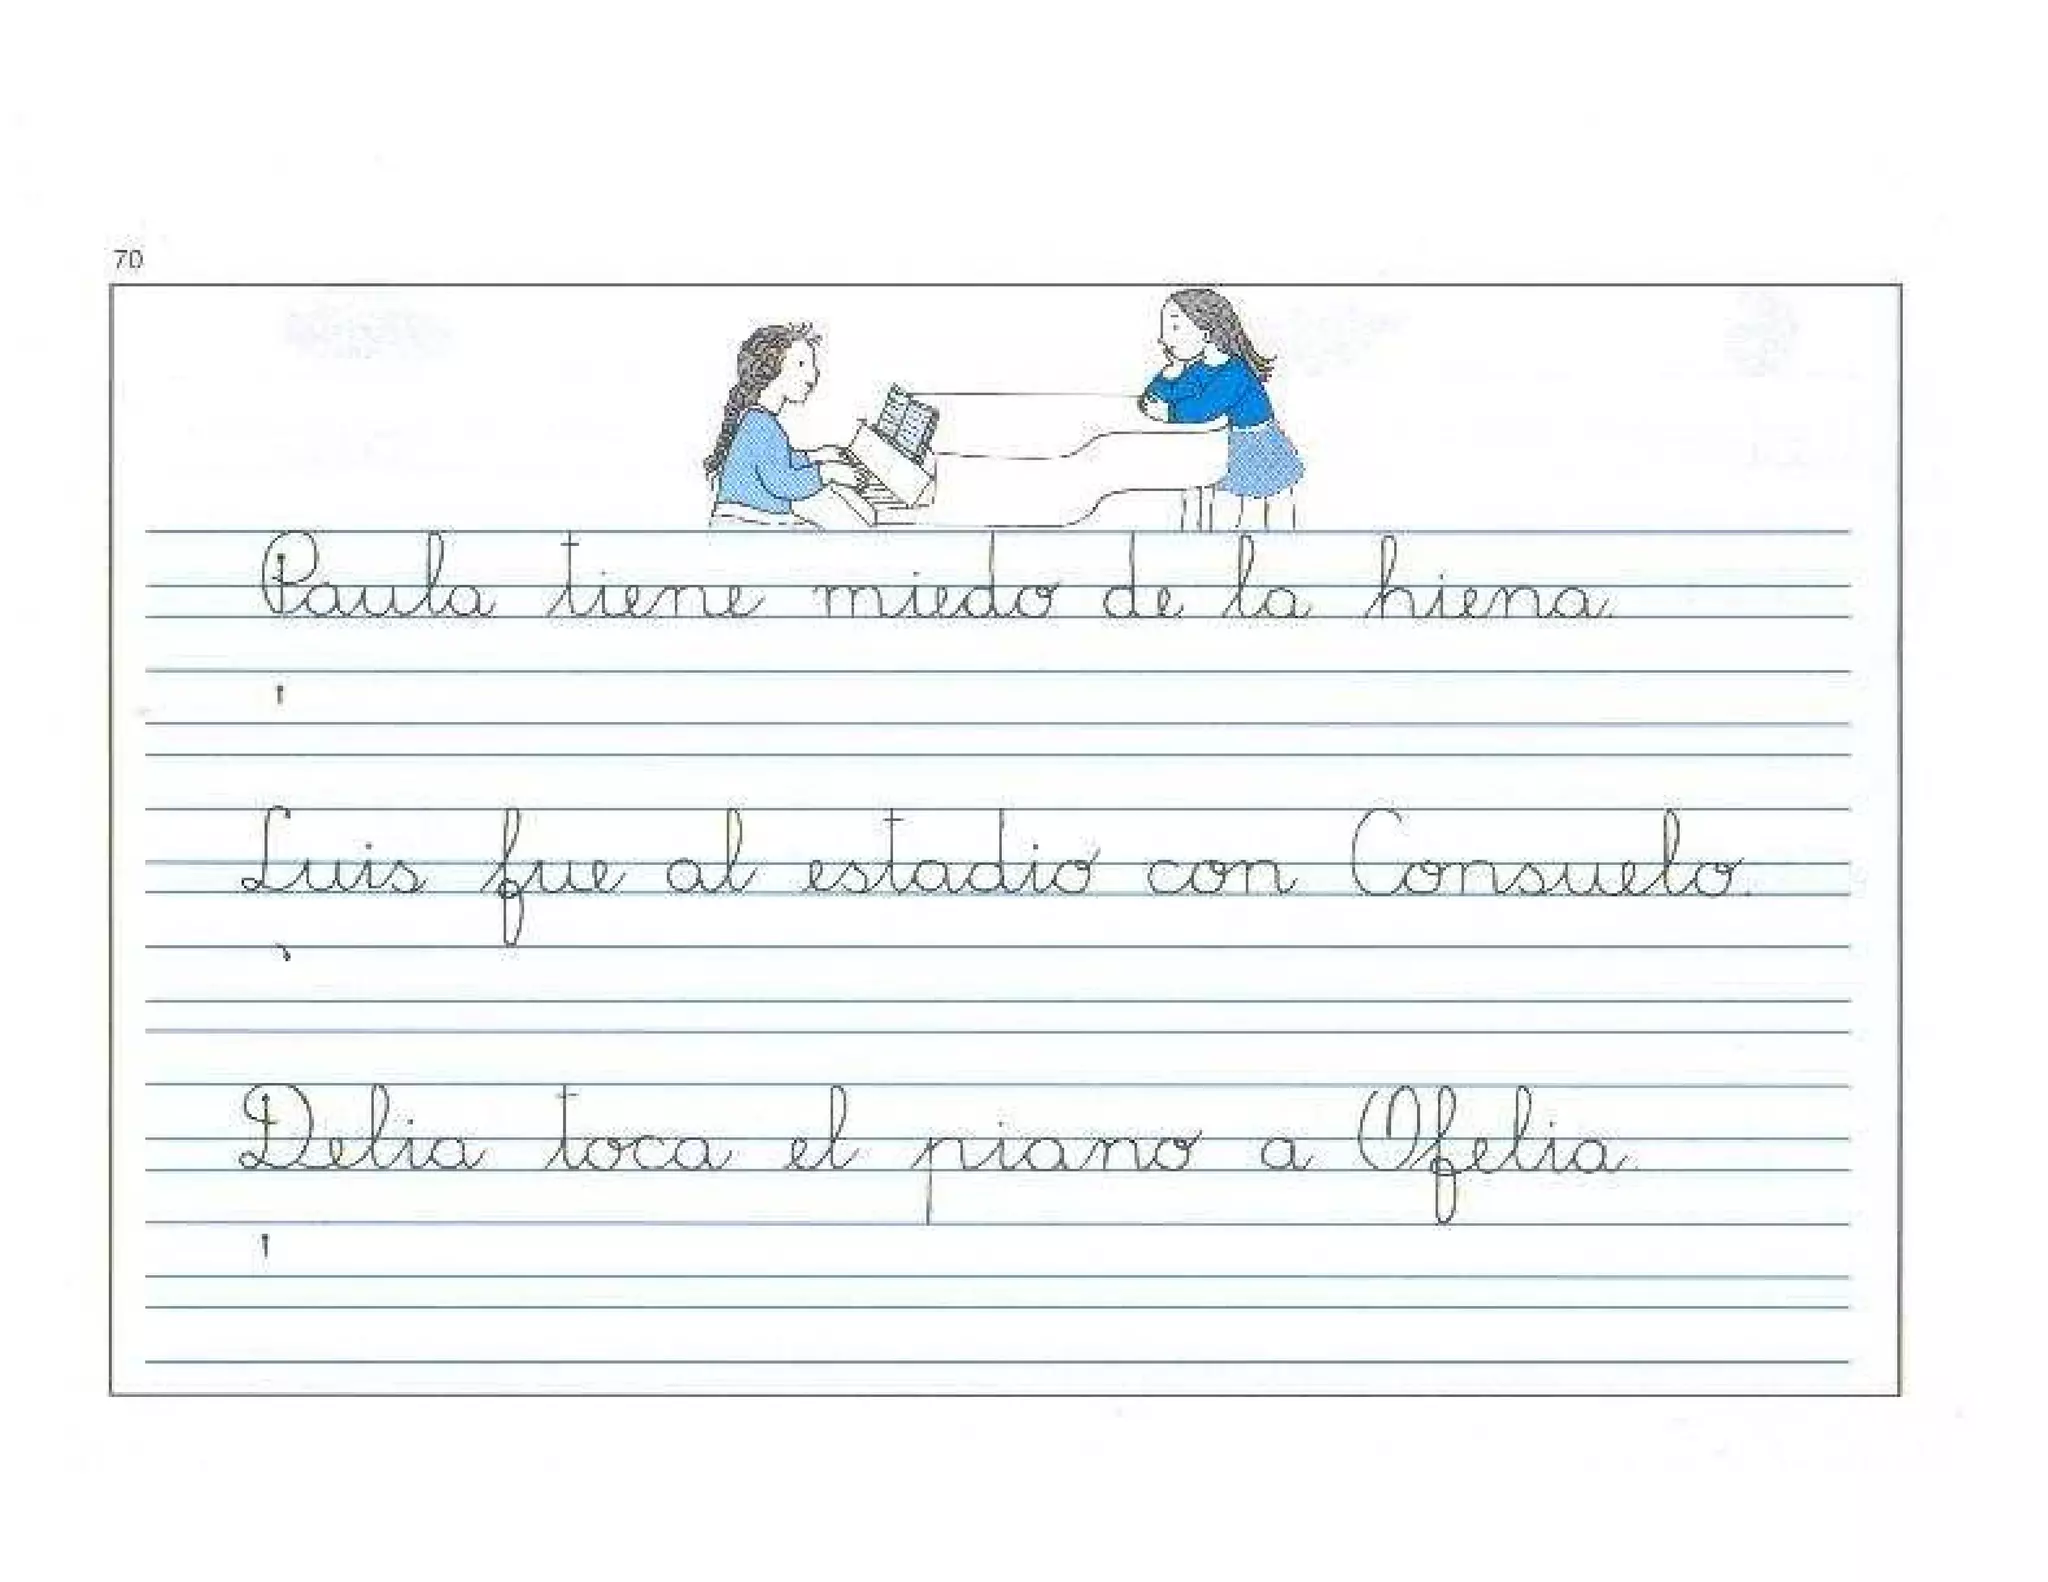 70
Paula tiene miedo de la hiena.
Luis fue al estadio con Consuelo.
Delia toca el piano a Ofelia.